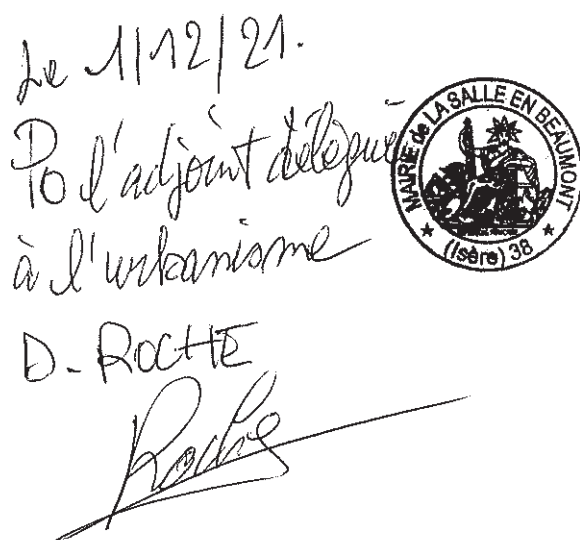 Le 1/12/21.
Po l'adjoint délégué
à l'urbanisme
D. ROCHE
Roche
MAIRIE de LA SALLE EN BEAUMONT
★ (Isère) 38 ★